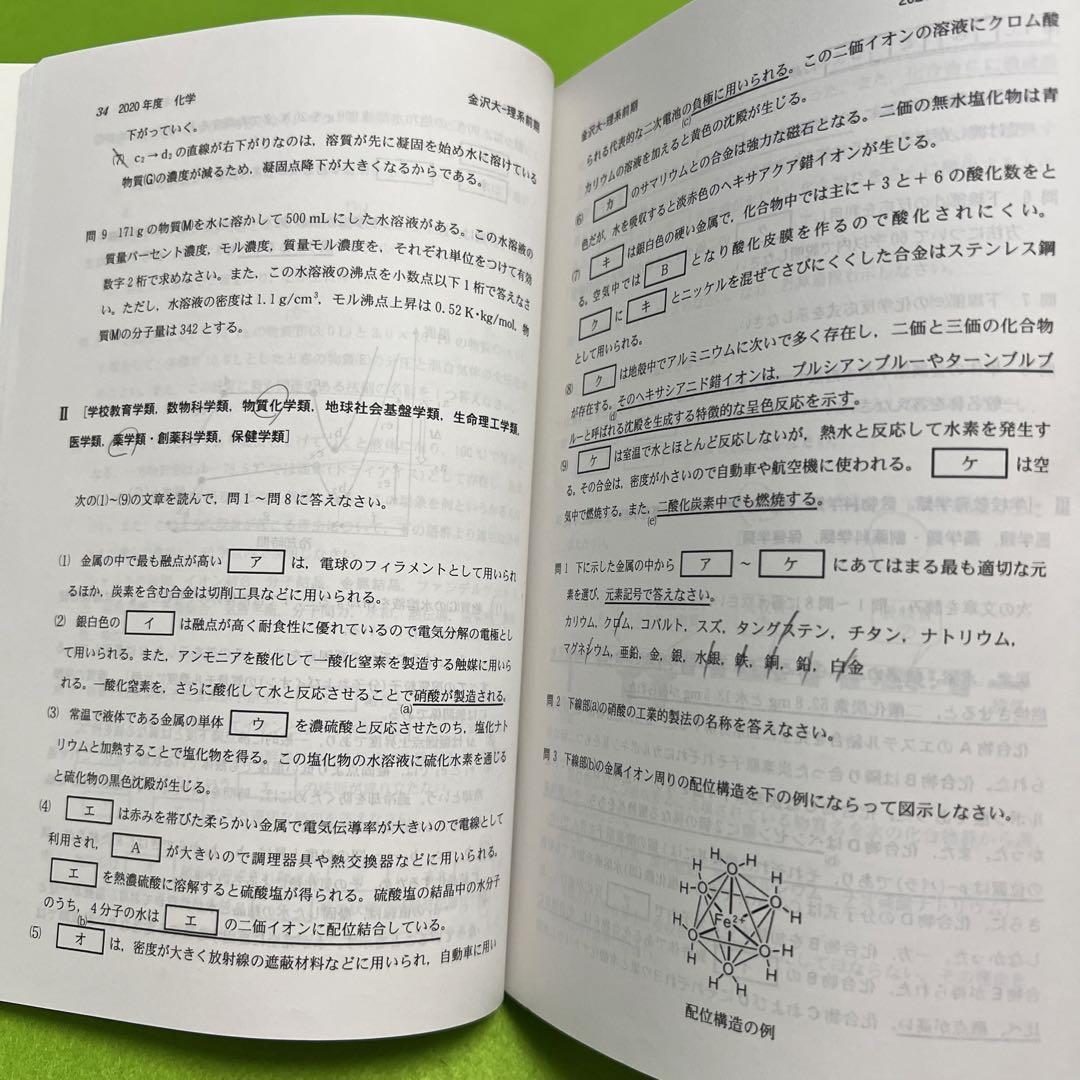 34 2020年度 化学 金沢大-理系前期
下がっていく。
(7) c₂→d₂の直線が右下がりなのは，溶質が先に凝固を始め水に溶けている
物質(G)の濃度が減るため，凝固点降下が大きくなるからである。
問9 171gの物質(M)を水に溶かして500mLにした水溶液がある。この水溶液の
質量パーセント濃度，モル濃度，質量モル濃度を，それぞれ単位をつけて有効
数字2桁で求めなさい。また，この水溶液の沸点を小数点以下1桁で答えなさ
い。ただし，水溶液の密度は1.1g/cm³，モル沸点上昇は0.52K・kg/mol，物
質(M)の分子量は342とする。
Ⅱ [学校教育学類，数物科学類，物質化学類，地球社会基盤学類，生命理工学類，
医学類，薬学類・創薬科学類，保健学類]
次の(1)～(9)の文章を読んで，問1～問8に答えなさい。
(1) 金属の中で最も融点が高い ア は，電球のフィラメントとして用いられ
るほか，炭素を含む合金は切削工具などに用いられる。
(2) 銀白色の イ は融点が高く耐食性に優れているので電気分解の電極とし
て用いられる。また，アンモニアを酸化して一酸化窒素を製造する触媒に用いら
れる。一酸化窒素を，さらに酸化して水と反応させることで硝酸が製造される。
(a)
(3) 常温で液体である金属の単体 ウ を濃硫酸と反応させたのち，塩化ナト
リウムと加熱することで塩化物を得る。この塩化物の水溶液に硫化水素を通じる
と硫化物の黒色沈殿が生じる。
(4) エ は赤みを帯びた柔らかい金属で電気伝導率が大きいので電線として
利用され， A が大きいので調理器具や熱交換器などに用いられる。
エ を熱濃硫酸に溶解すると硫酸塩が得られる。硫酸塩の結晶中の水分子
のうち，4分子の水は エ の二価イオンに配位結合している。
(b)
(5) オ は，密度が大きく放射線の遮蔽材料などに用いられ，自動車に用い
金沢大-理系前期
られる代表的な二次電池の負極に用いられる。この二価イオンの溶液にクロム酸
(c)
カリウムの溶液を加えると黄色の沈殿が生じる。
(6) カ のサマリウムとの合金は強力な磁石となる。二価の無水塩化物は青
色だが，水を吸収すると淡赤色のヘキサアクア錯イオンが生じる。
(7) キ は銀白色の硬い金属で，化合物中では主に＋3と＋6の酸化数をと
る。空気中では B となり酸化皮膜を作るので酸化されにくい。
ク に キ とニッケルを混ぜてさびにくくした合金はステンレス鋼
として用いられる。
(8) ク は地殻中でアルミニウムに次いで多く存在し，二価と三価の化合物
が存在する。そのヘキサシアニド錯イオンは，プルシアンブルーやターンブルブ
(d)
ルーと呼ばれる沈殿を生成する特徴的な呈色反応を示す。
(9) ケ は室温で水とほとんど反応しないが，熱水と反応して水素を発生す
る。その合金は，密度が小さいので自動車や航空機に使われる。 ケ は空
気中で燃焼する。また，二酸化炭素中でも燃焼する。
(e)
問1 下に示した金属の中から ア ～ ケ にあてはまる最も適切な元
素を選び，元素記号で答えなさい。
カリウム，クロム，コバルト，スズ，タングステン，チタン，ナトリウム，
マグネシウム，亜鉛，金，銀，水銀，鉄，銅，鉛，白金
問2 下線部(a)の硝酸の工業的製法の名称を答えなさい。
問3 下線部(b)の金属イオン周りの配位構造を下の例にならって図示しなさい。
H H
H O H
H O O H
Fe²⁺
H O O H
H O H
H H
配位構造の例